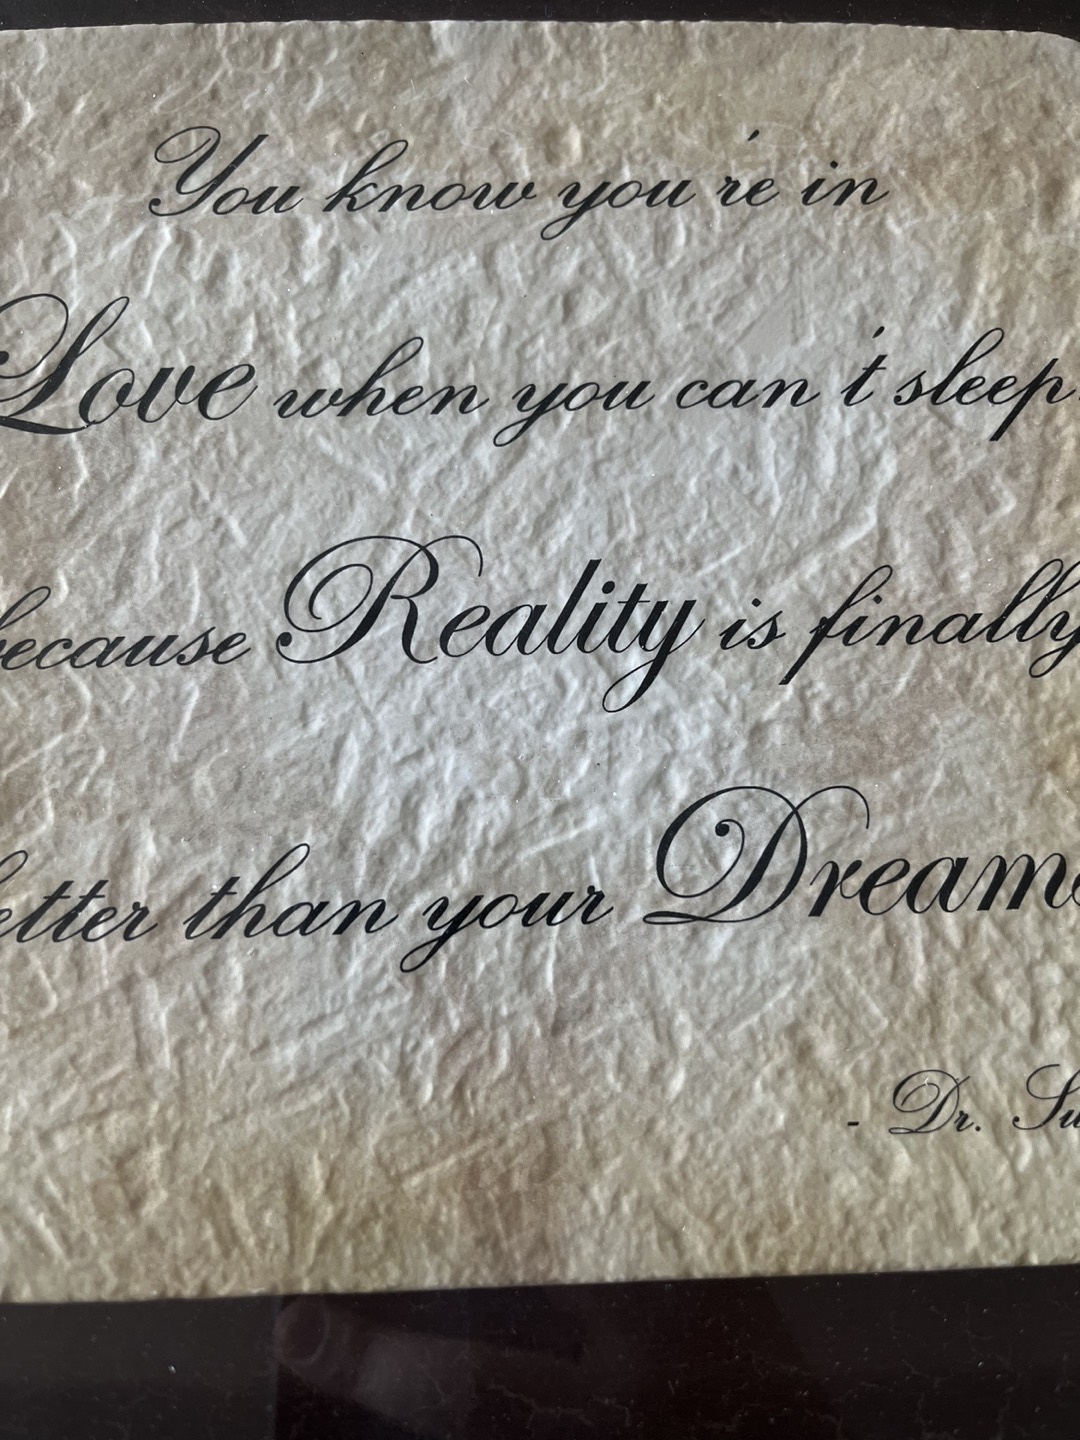 You know you're in
Love when you can't sleep
because Reality is finally
better than your Dreams
- Dr.